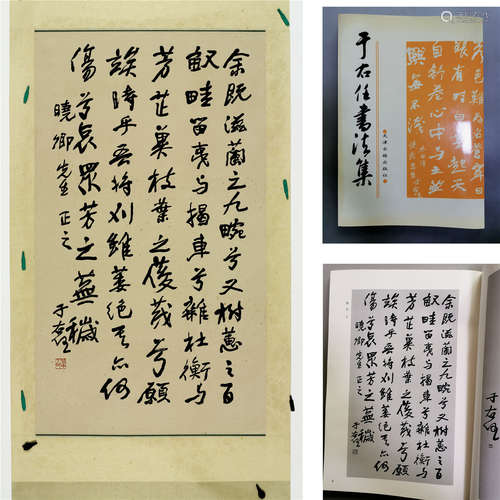 余既滋蘭之九畹兮又樹蕙之百
畝畦留夷與揭車兮雜杜衡與
芳芷冀枝葉之俊茂兮願
竢時乎吾將刈雖萎絕其亦何
傷兮哀眾芳之蕪穢
曉卿先生正之
于右任
于右任書法集
天津古籍出版社
余既滋蘭之九畹兮又樹蕙之百
畝畦留夷與揭車兮雜杜衡與
芳芷冀枝葉之俊茂兮願
竢時乎吾將刈雖萎絕其亦何
傷兮哀眾芳之蕪穢
曉卿先生正之
于右任
于右任